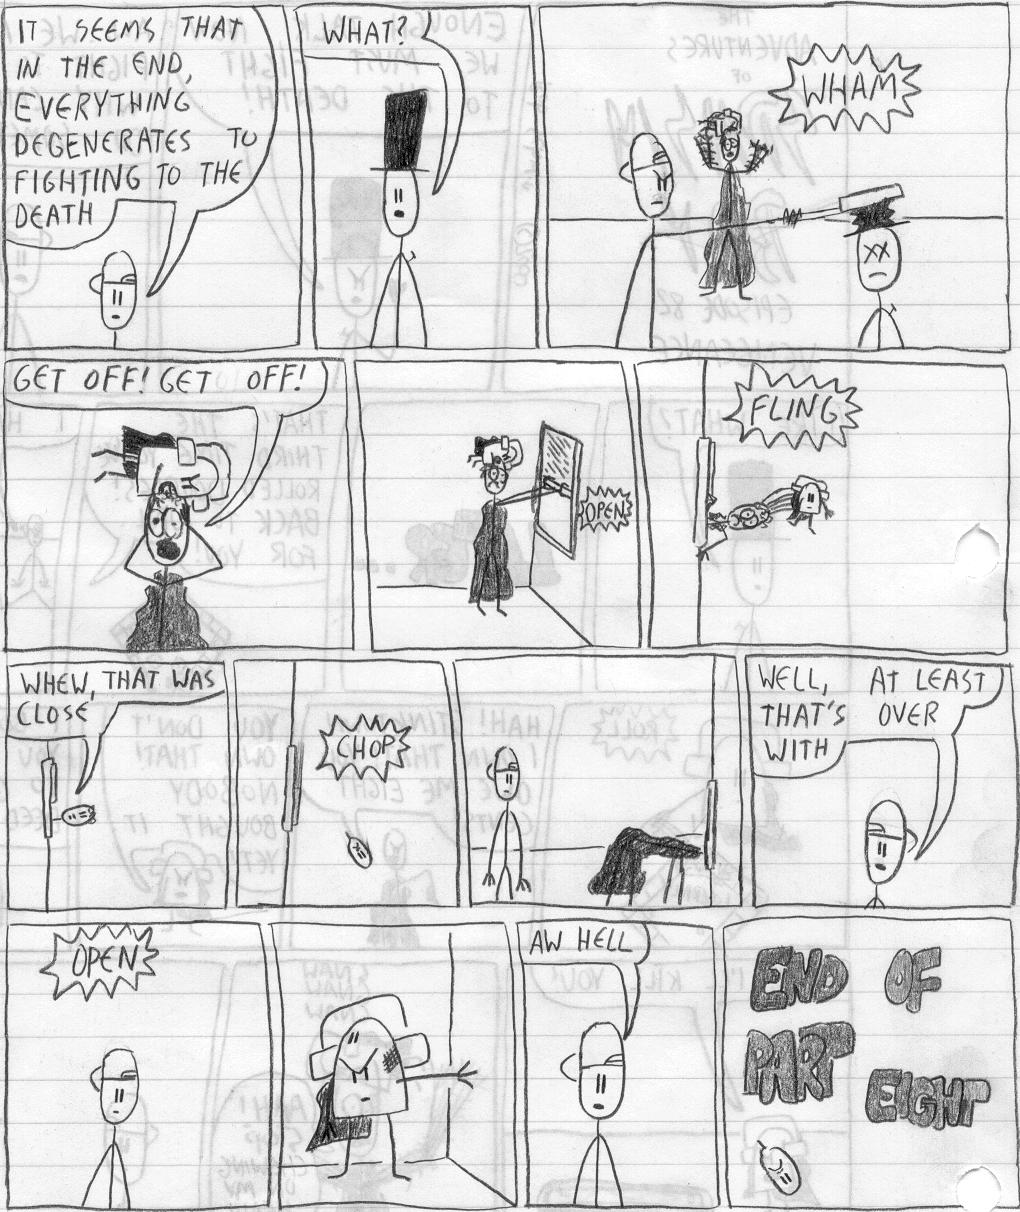 IT SEEMS THAT
IN THE END,
EVERYTHING
DEGENERATES TO
FIGHTING TO THE
DEATH
WHAT?
WHAM
GET OFF! GET OFF!
OPEN
FLING
WHEW, THAT WAS
CLOSE
CHOP
WELL, AT LEAST
THAT'S OVER
WITH
OPEN
AW HELL
END OF
PART
EIGHT